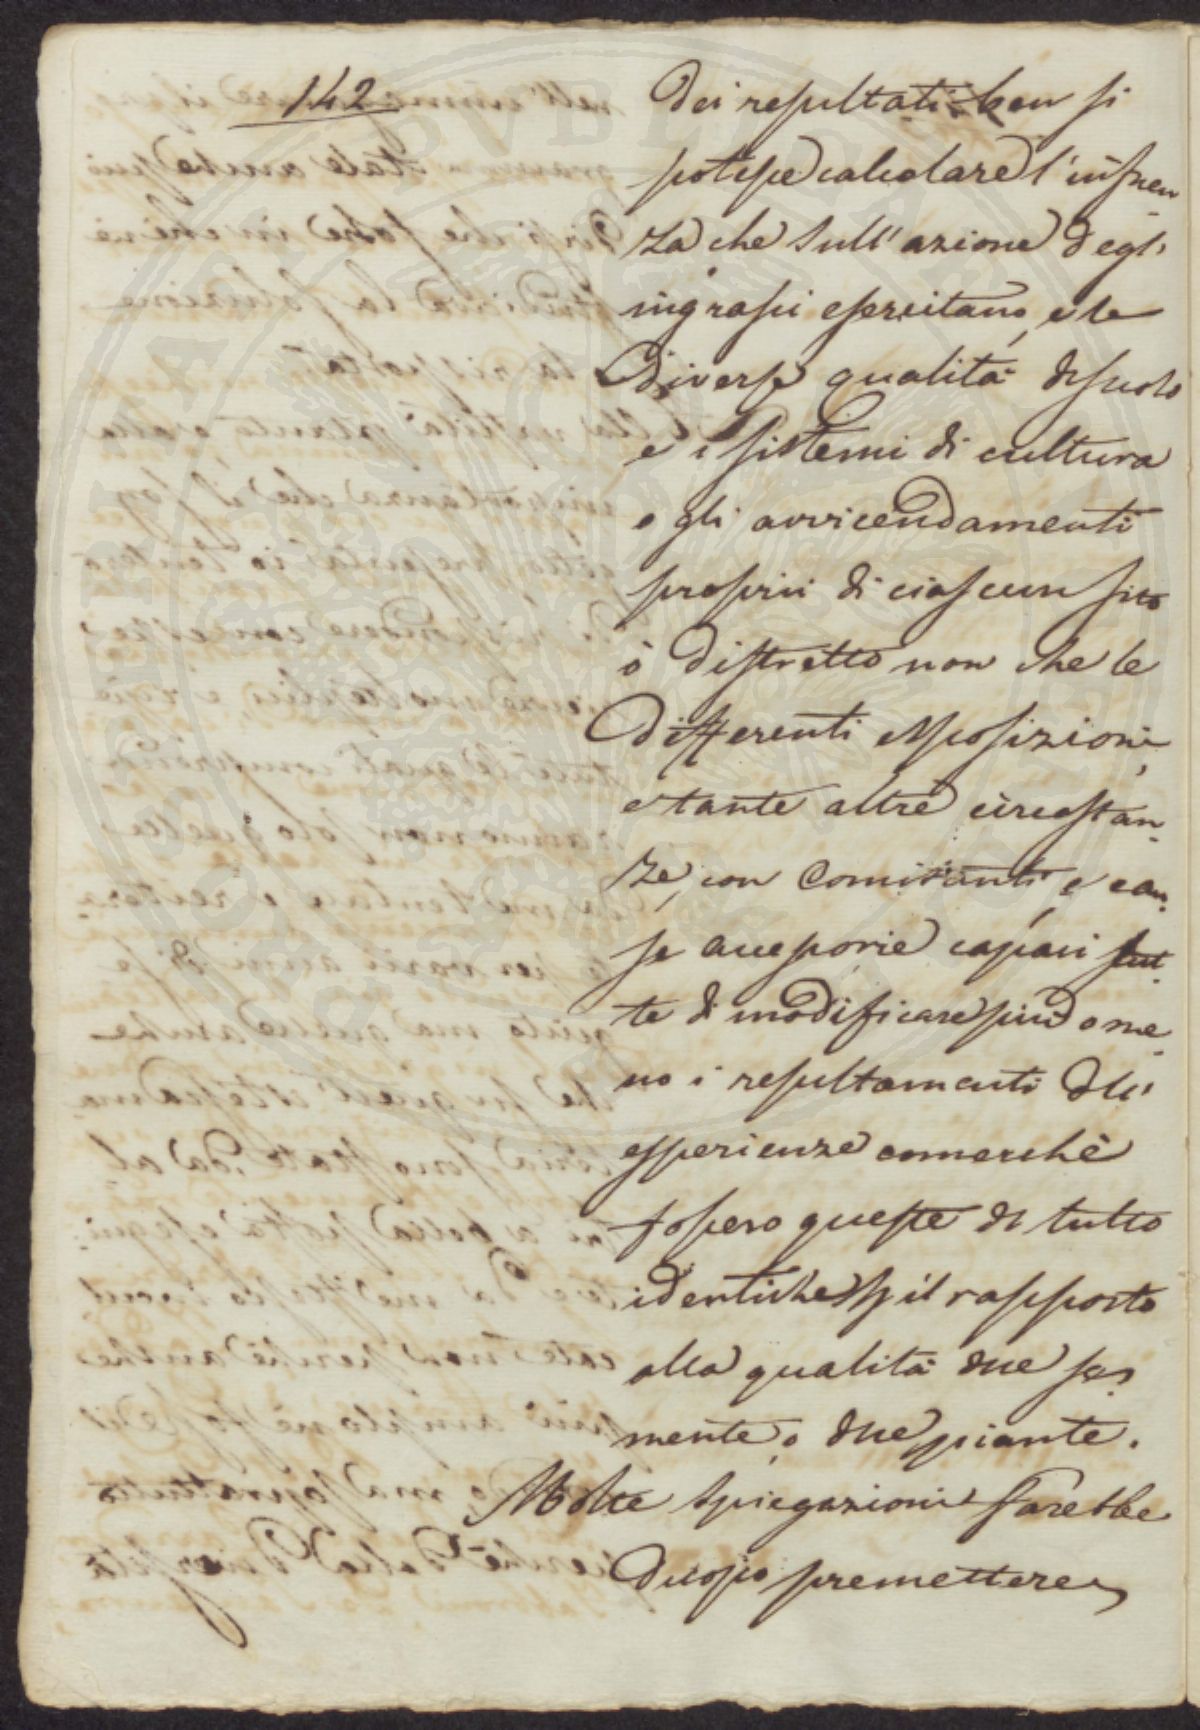 142
dei resultati ben si
potesse calcolare l'influen-
za che sull'azione degl'
ingrassi esercitano, e le
diverse qualità di suolo
e i sistemi di cultura
e gli avvicendamenti
proprii di ciascun sito
ò distretto non che le
differenti esposizioni,
e tante altre circostan-
ze, con comitanti, e cau-
se accessorie capaci tut-
te di modificare più o me-
no i resultamenti dell'
esperienze comecchè
fossero queste di tutto
identiche p il rapporto
alla qualità due se
mente, o due piante.
Molte spiegazioni sarebbe
duopo premettere